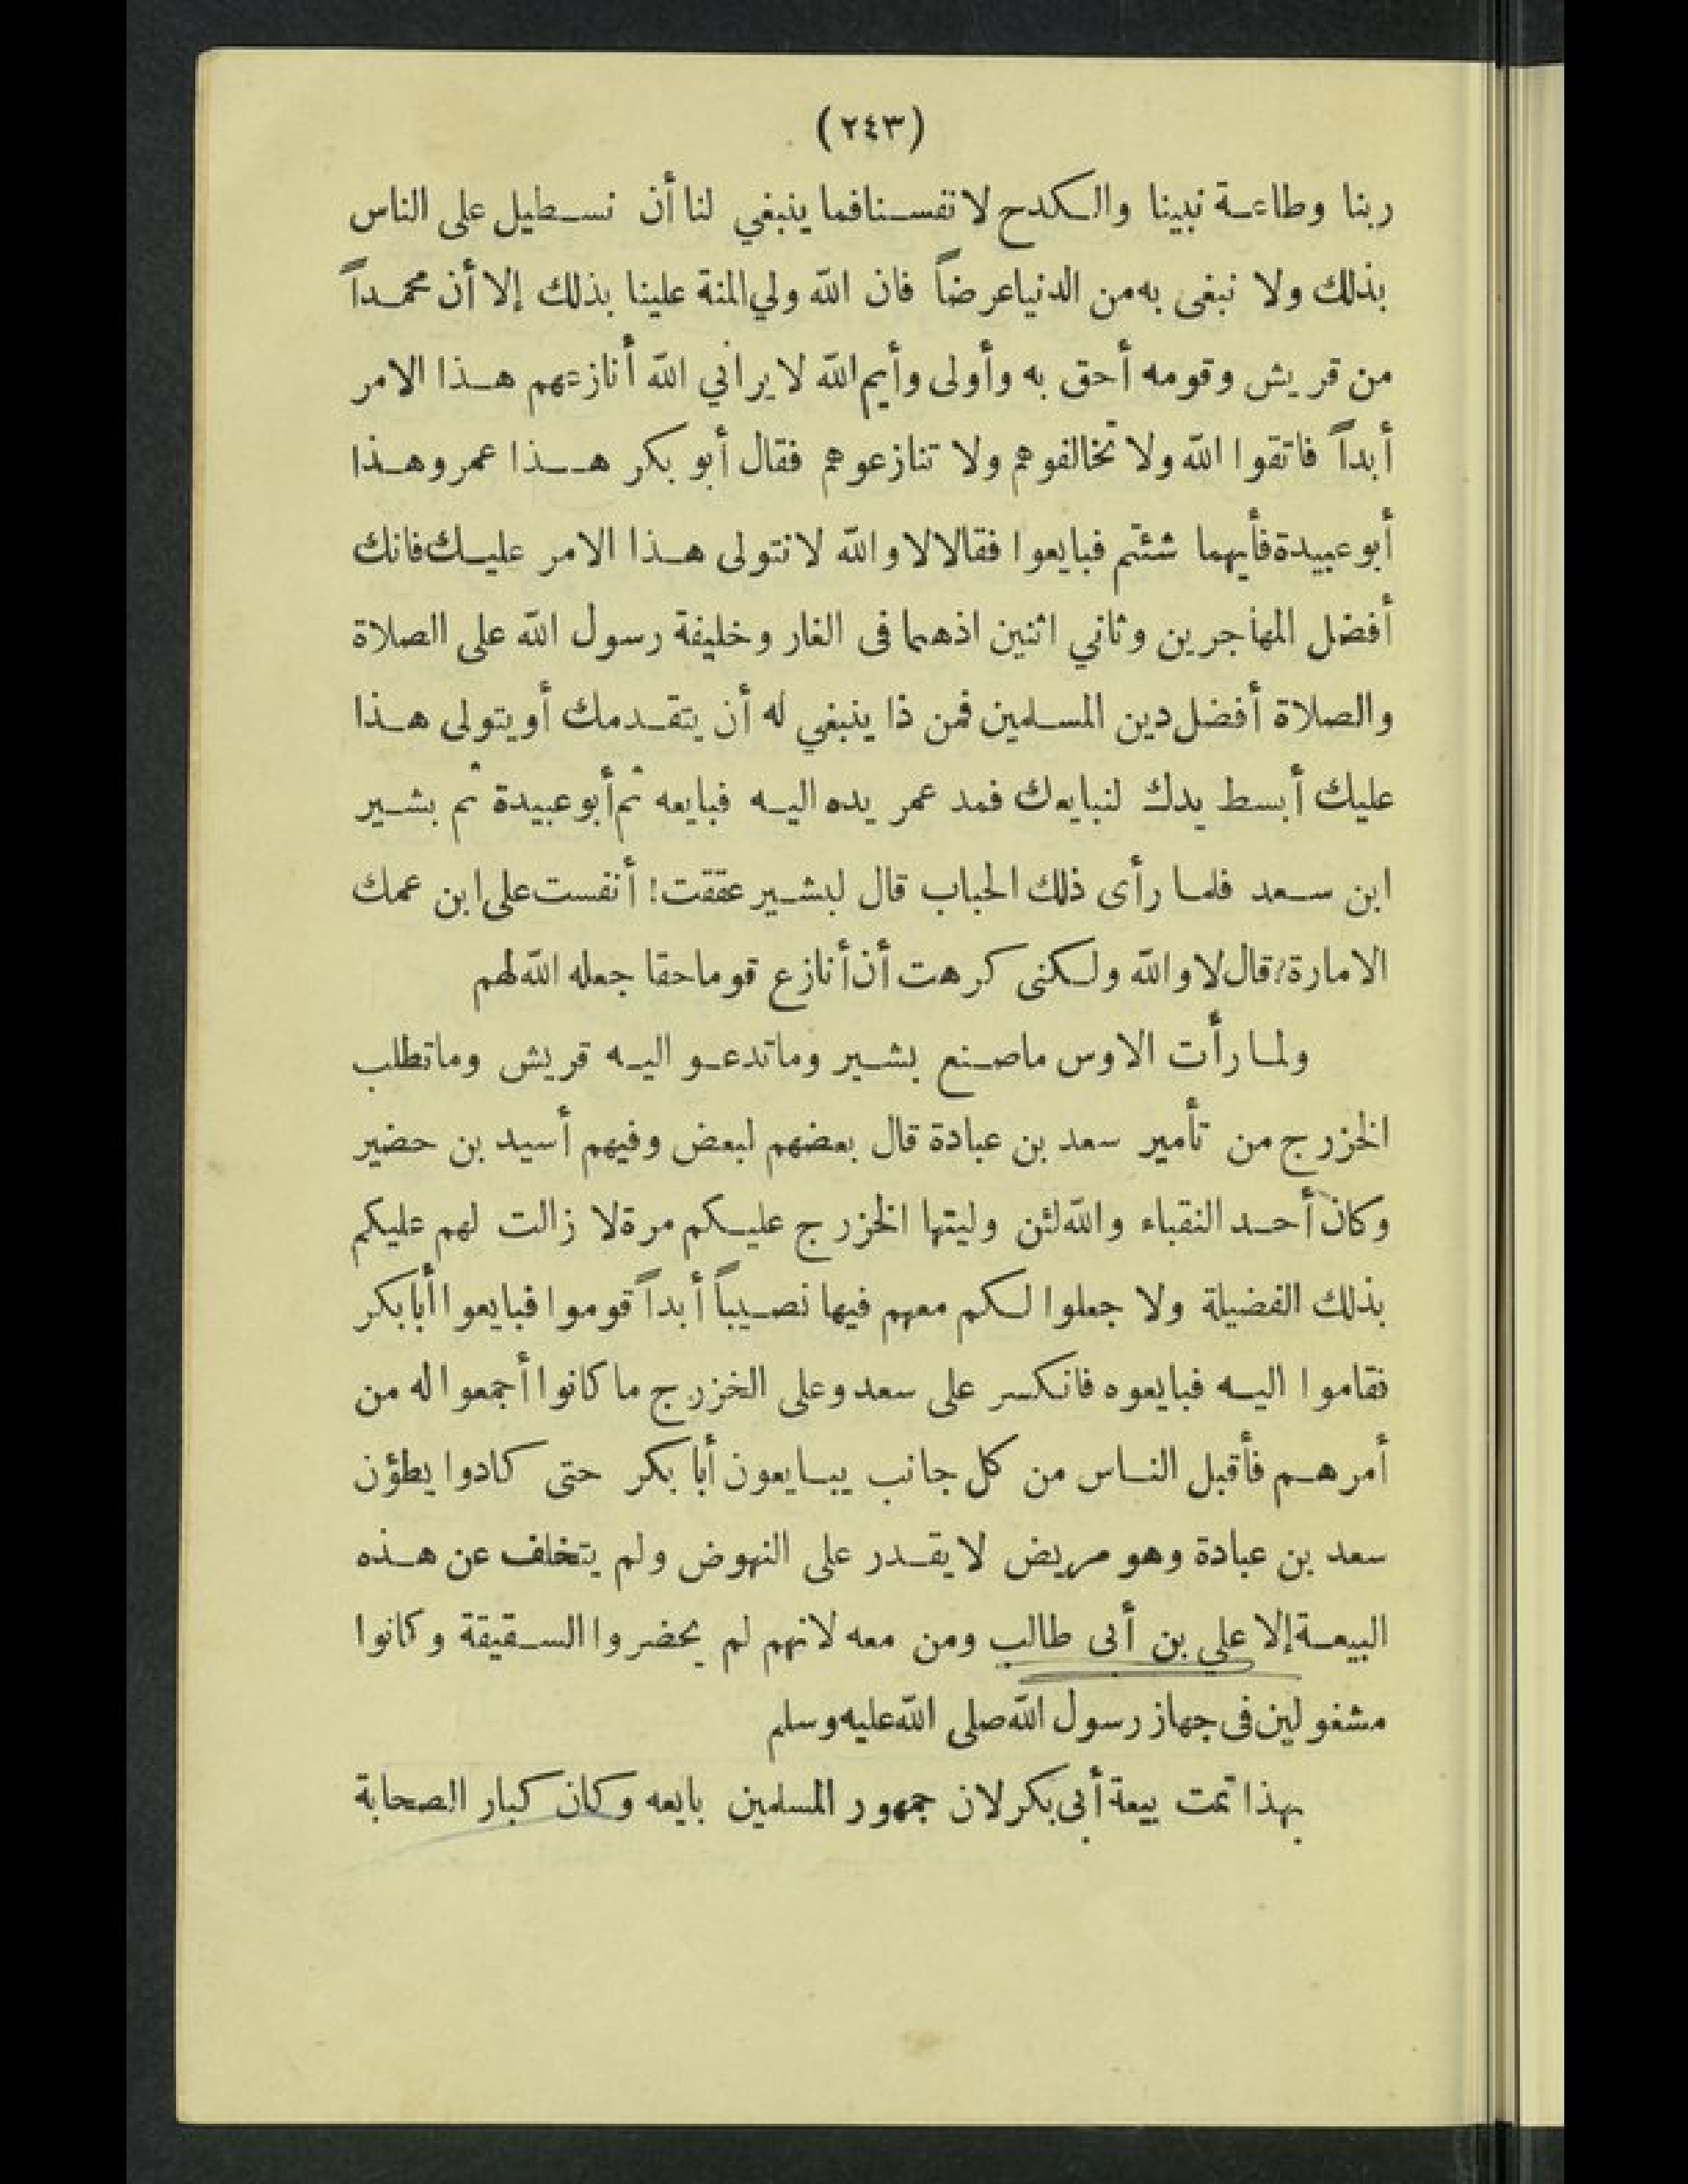 (٢٤٣)
ربنا وطاعة نبينا والكدح لانفسنا فما ينبغي لنا أن نسطيل على الناس
بذلك ولا نبغى به من الدنيا عرضاً فان الله ولي المنة علينا بذلك إلا أن محمداً
من قريش وقومه أحق به وأولى وأيم الله لا يراني الله أنازعهم هذا الامر
أبداً فاتقوا الله ولا تخالفوهم ولا تنازعوهم فقال أبو بكر هذا عمر وهذا
أبو عبيدة فأيهما شئتم فبايعوا فقالا لا والله لا نتولى هذا الامر عليك فانك
أفضل المهاجرين وثاني اثنين اذ هما فى الغار وخليفة رسول الله على الصلاة
والصلاة أفضل دين المسلمين فمن ذا ينبغي له أن يتقدمك أو يتولى هذا
عليك أبسط يدك لنبايعك فمد عمر يده اليه فبايعه ثم أبو عبيدة ثم بشير
ابن سعد فلما رأى ذلك الحباب قال لبشير عققت! أنفست على ابن عمك
الامارة؟ قال لا والله ولكنى كرهت أن أنازع قوما حقا جعله الله لهم
ولما رأت الاوس ما صنع بشير وما تدعو اليه قريش وما تطلب
الخزرج من تأمير سعد بن عبادة قال بعضهم لبعض وفيهم أسيد بن حضير
وكان أحد النقباء والله لئن وليتها الخزرج عليكم مرة لا زالت لهم عليكم
بذلك الفضيلة ولا جعلوا لكم معهم فيها نصيباً أبداً قوموا فبايعوا أبا بكر
فقاموا اليه فبايعوه فانكسر على سعد وعلى الخزرج ما كانوا أجمعوا له من
أمرهم فأقبل الناس من كل جانب يبايعون أبا بكر حتى كادوا يطؤن
سعد بن عبادة وهو مريض لا يقدر على النهوض ولم يتخلف عن هذه
البيعة إلا علي بن أبى طالب ومن معه لانهم لم يحضروا السقيقة وكانوا
مشغولين فى جهاز رسول الله صلى الله عليه وسلم
بهذا تمت بيعة أبى بكر لان جمهور المسلمين بايعه وكان كبار الصحابة